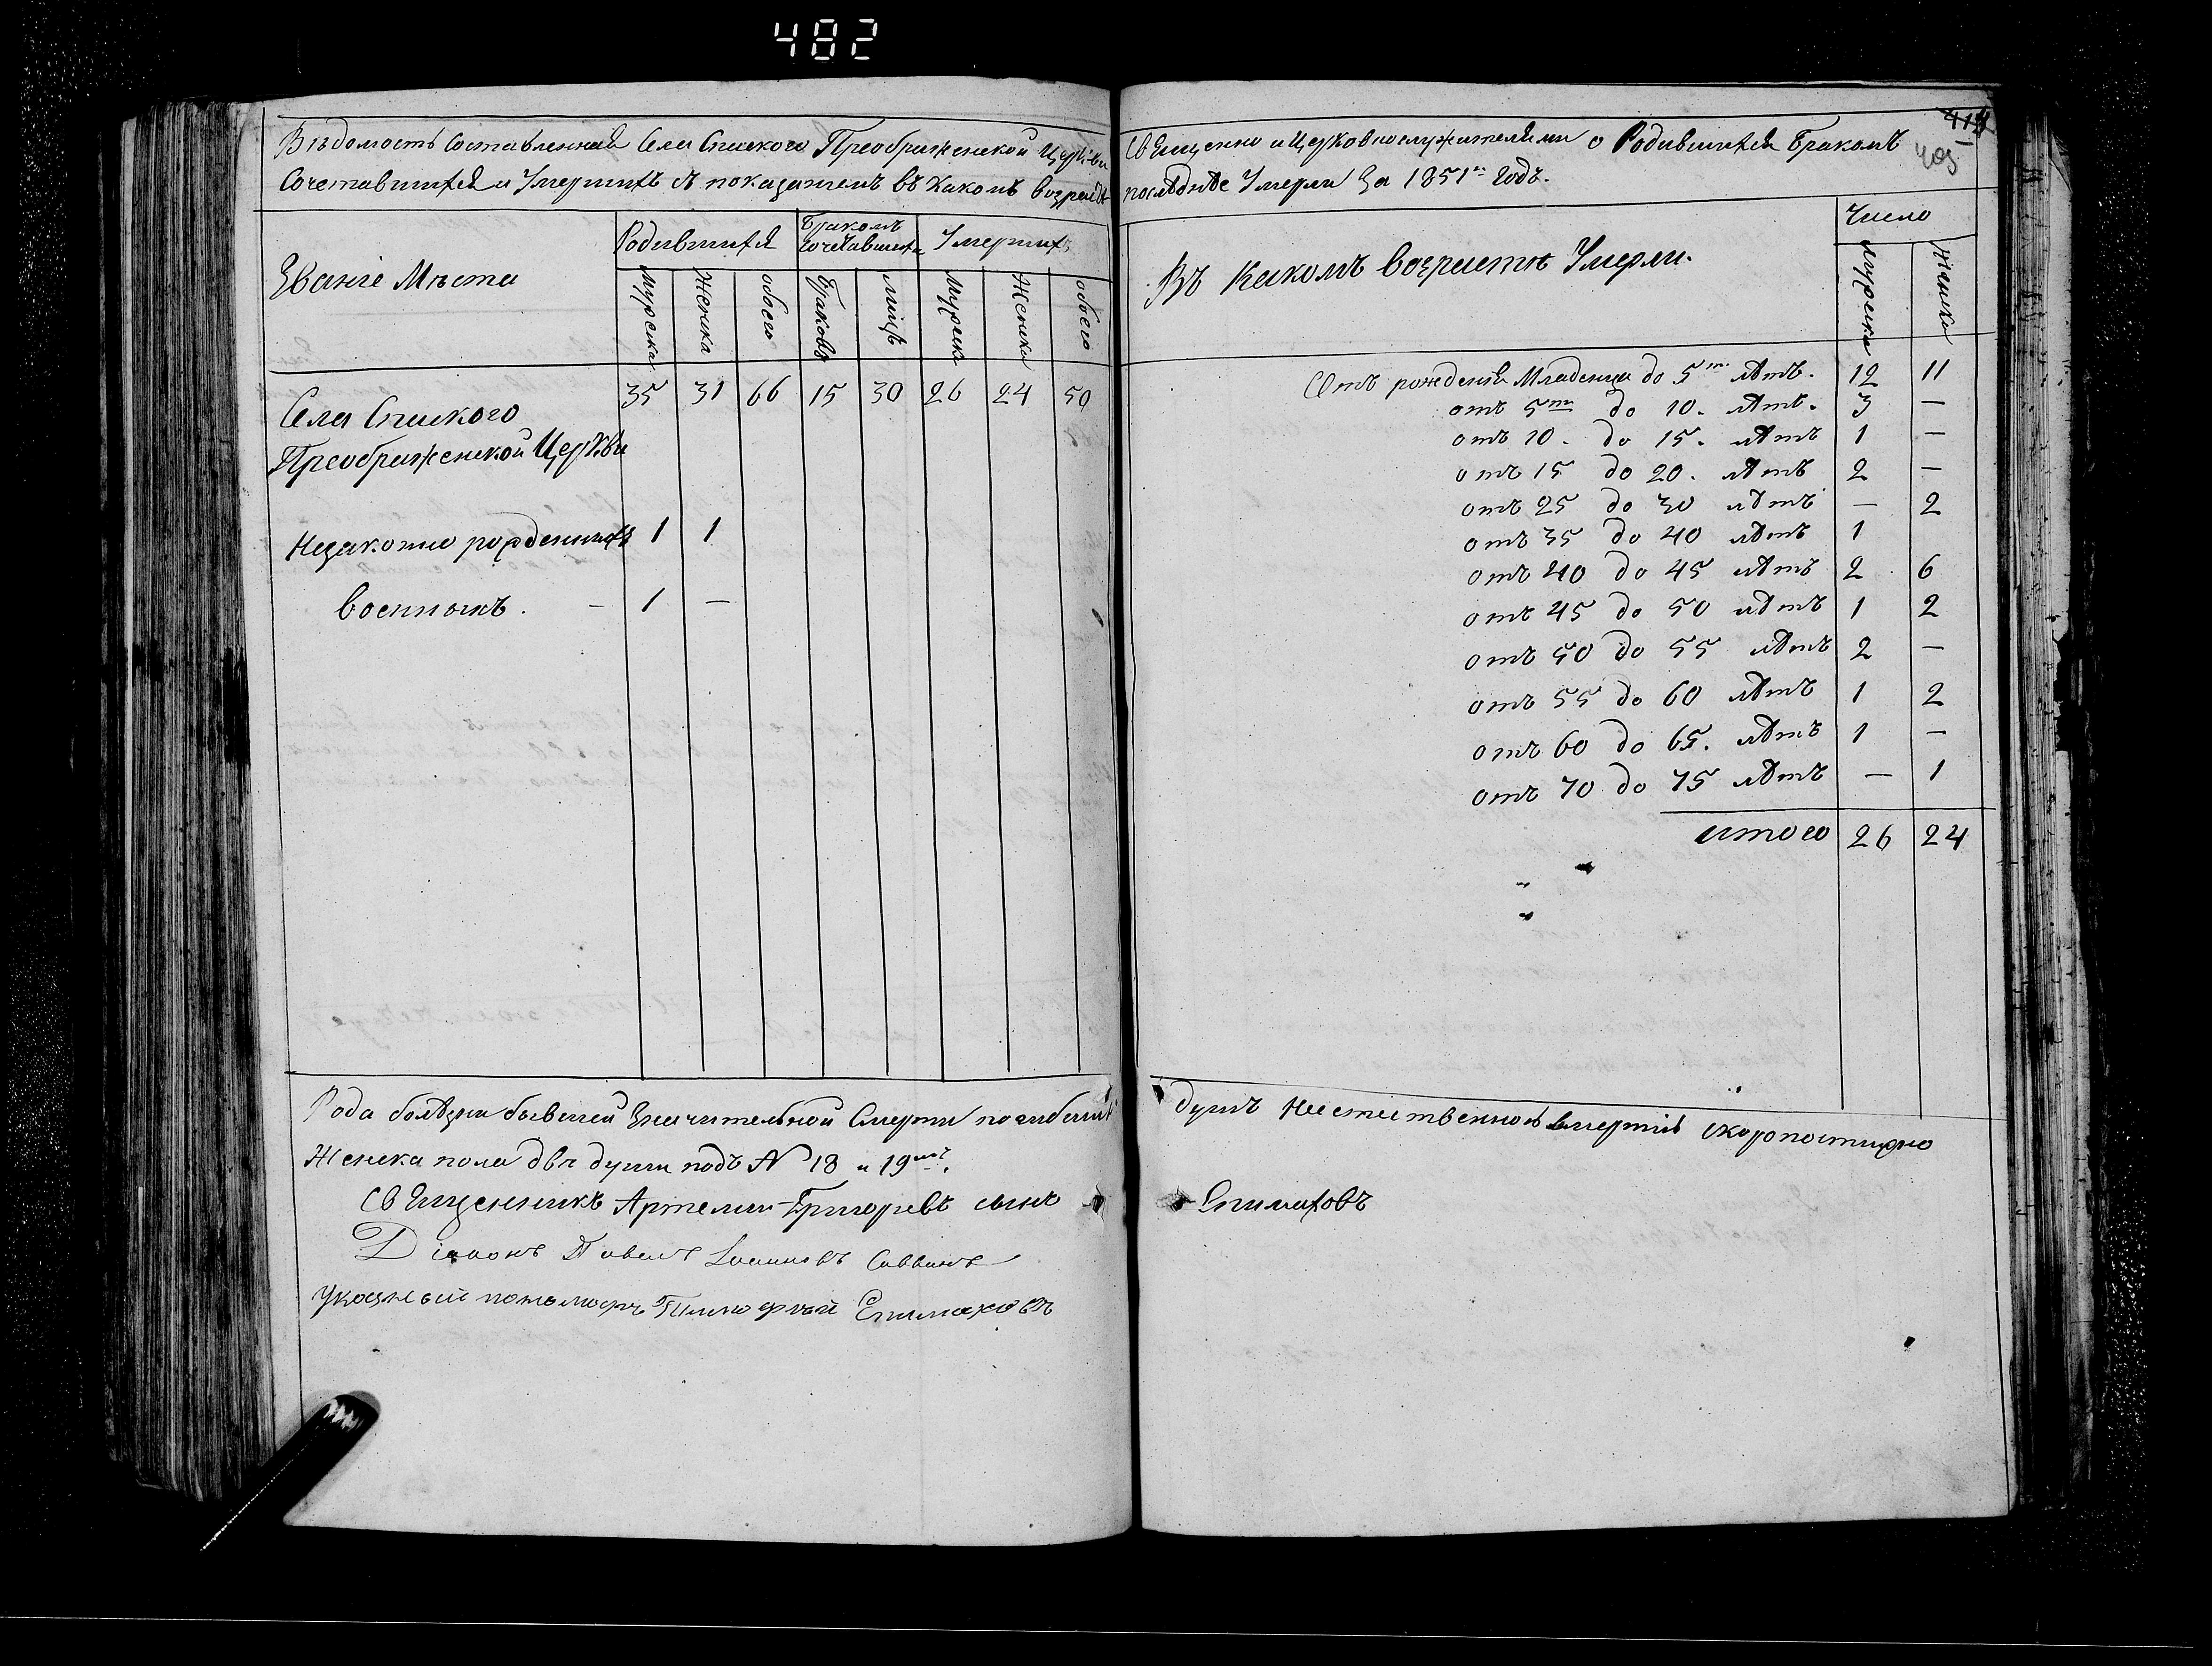 482
414
405
Вѣдомость составленная села Спаского Преображенской Церкви
Сочетавшихся и Умершихъ съ показаніемъ въ какомъ возрастѣ
Званіе Мѣста
Родившихся
Бракомъ сочетавшихся
Умершихъ
Мужеска
Женска
обоего
Браковъ
лицъ
Мужеск
Женска
обоего
Села Спаского 35 31 66 15 30 26 24 50
Преображенской Церкви
Незаконно рожденныхъ 1 1
военныхъ. — 1 —
Рода болѣзни бывшей Значительной Смерти погибшихъ
Женска пола двѣ души подъ № 18 и 19
Священникъ Артемий Григорьевъ сынъ
Діаконъ Павелъ Іоанновъ Саввинъ
Указный пономарь Епимаховъ
Священно и Церковнослужителями о Родившихся Бракомъ
послѣдніе Умерли За 1851 Годъ.
Въ Какомъ возрастѣ Умерли.
Число
Мужеска
Женска
Отъ рожденія Младенца до 5 лѣтъ. 12 11
отъ 5 до 10. лѣтъ. 3 —
отъ 10. до 15. лѣтъ 1 —
отъ 15 до 20. лѣтъ 2 —
отъ 25 до 30 лѣтъ — 2
отъ 35 до 40 лѣтъ 1
отъ 40 до 45 лѣтъ 2 6
отъ 45 до 50 лѣтъ 1 2
отъ 50 до 55 лѣтъ 2 —
отъ 55 до 60 лѣтъ 1 2
отъ 60 до 65. лѣтъ 1 —
отъ 70 до 75 лѣтъ — 1
итого 26 24
душъ скоропостижно
Епимаховъ